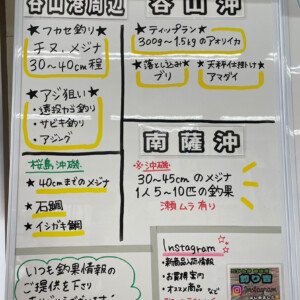 谷山港周辺
★フカセ釣り★
チヌ、メジナ
30～40cm程
★アジ狙い★
・遠投カゴ釣り
・サビキ釣り
・アジング
桜島沖磯
★40cmまでのメジナ
★石鯛
★イシガキ鯛
いつも釣果情報の
ご提供を下さり
谷山沖
★ティップラン★
300g～1.5kgのアオリイカ
★落とし込み★
ブリ
★天秤仕掛け★
アマダイ
南薩沖
※沖磯
30～45cmのメジナ
1人5～10匹の釣果
瀬ムラ有り
Instagram
・新商品入荷情報
・お買得案内
・オススメ商品 など